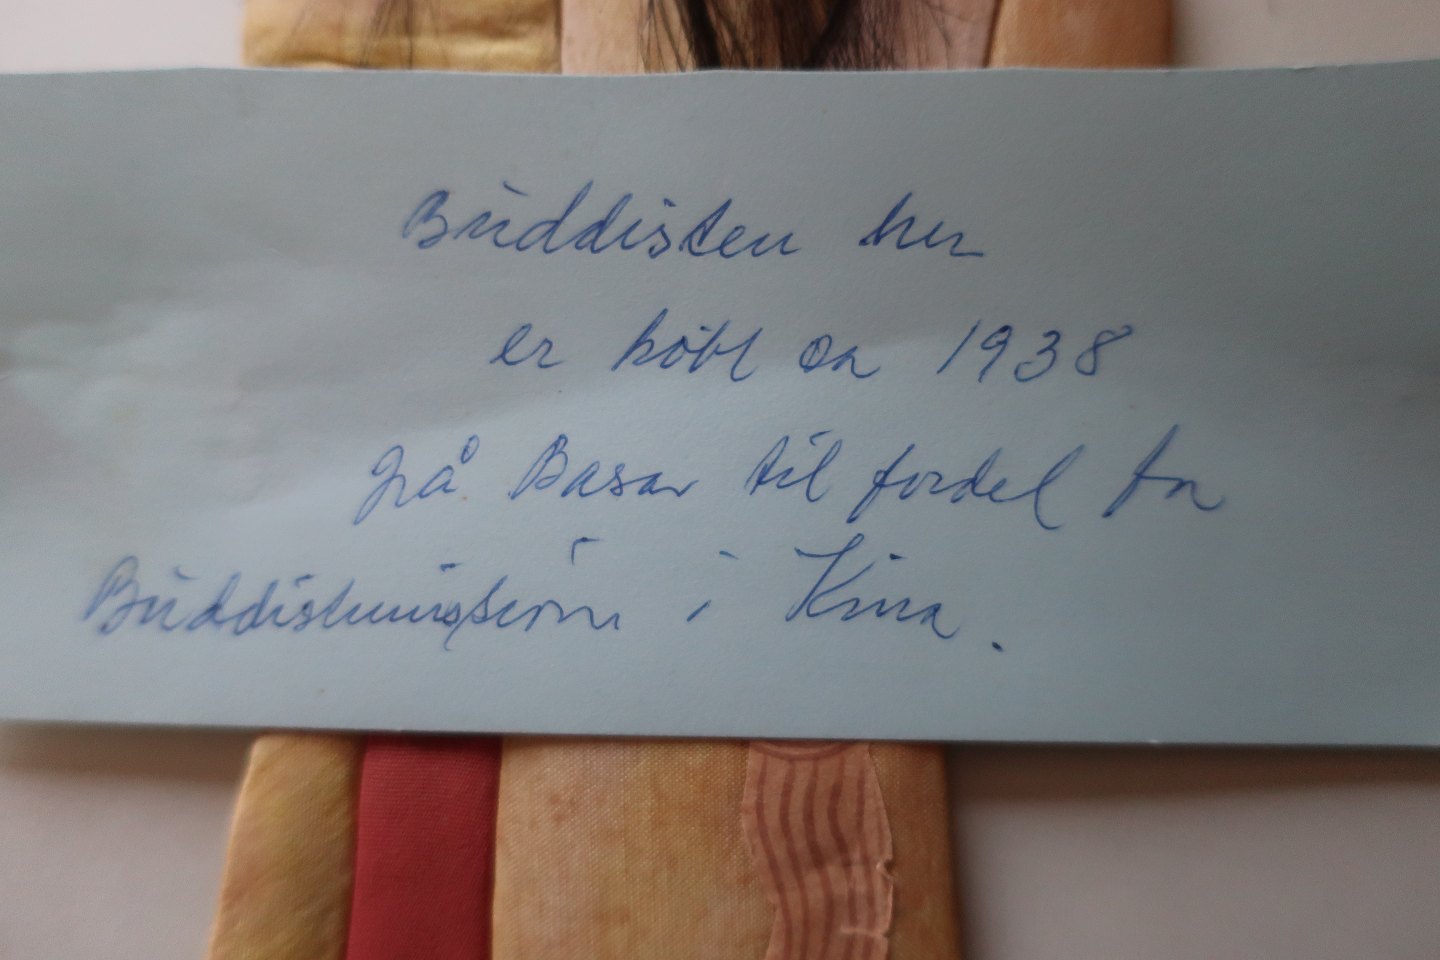 Buddisten her
er købt ca 1938
på Basar til fordel for
Buddistmission i Kina.